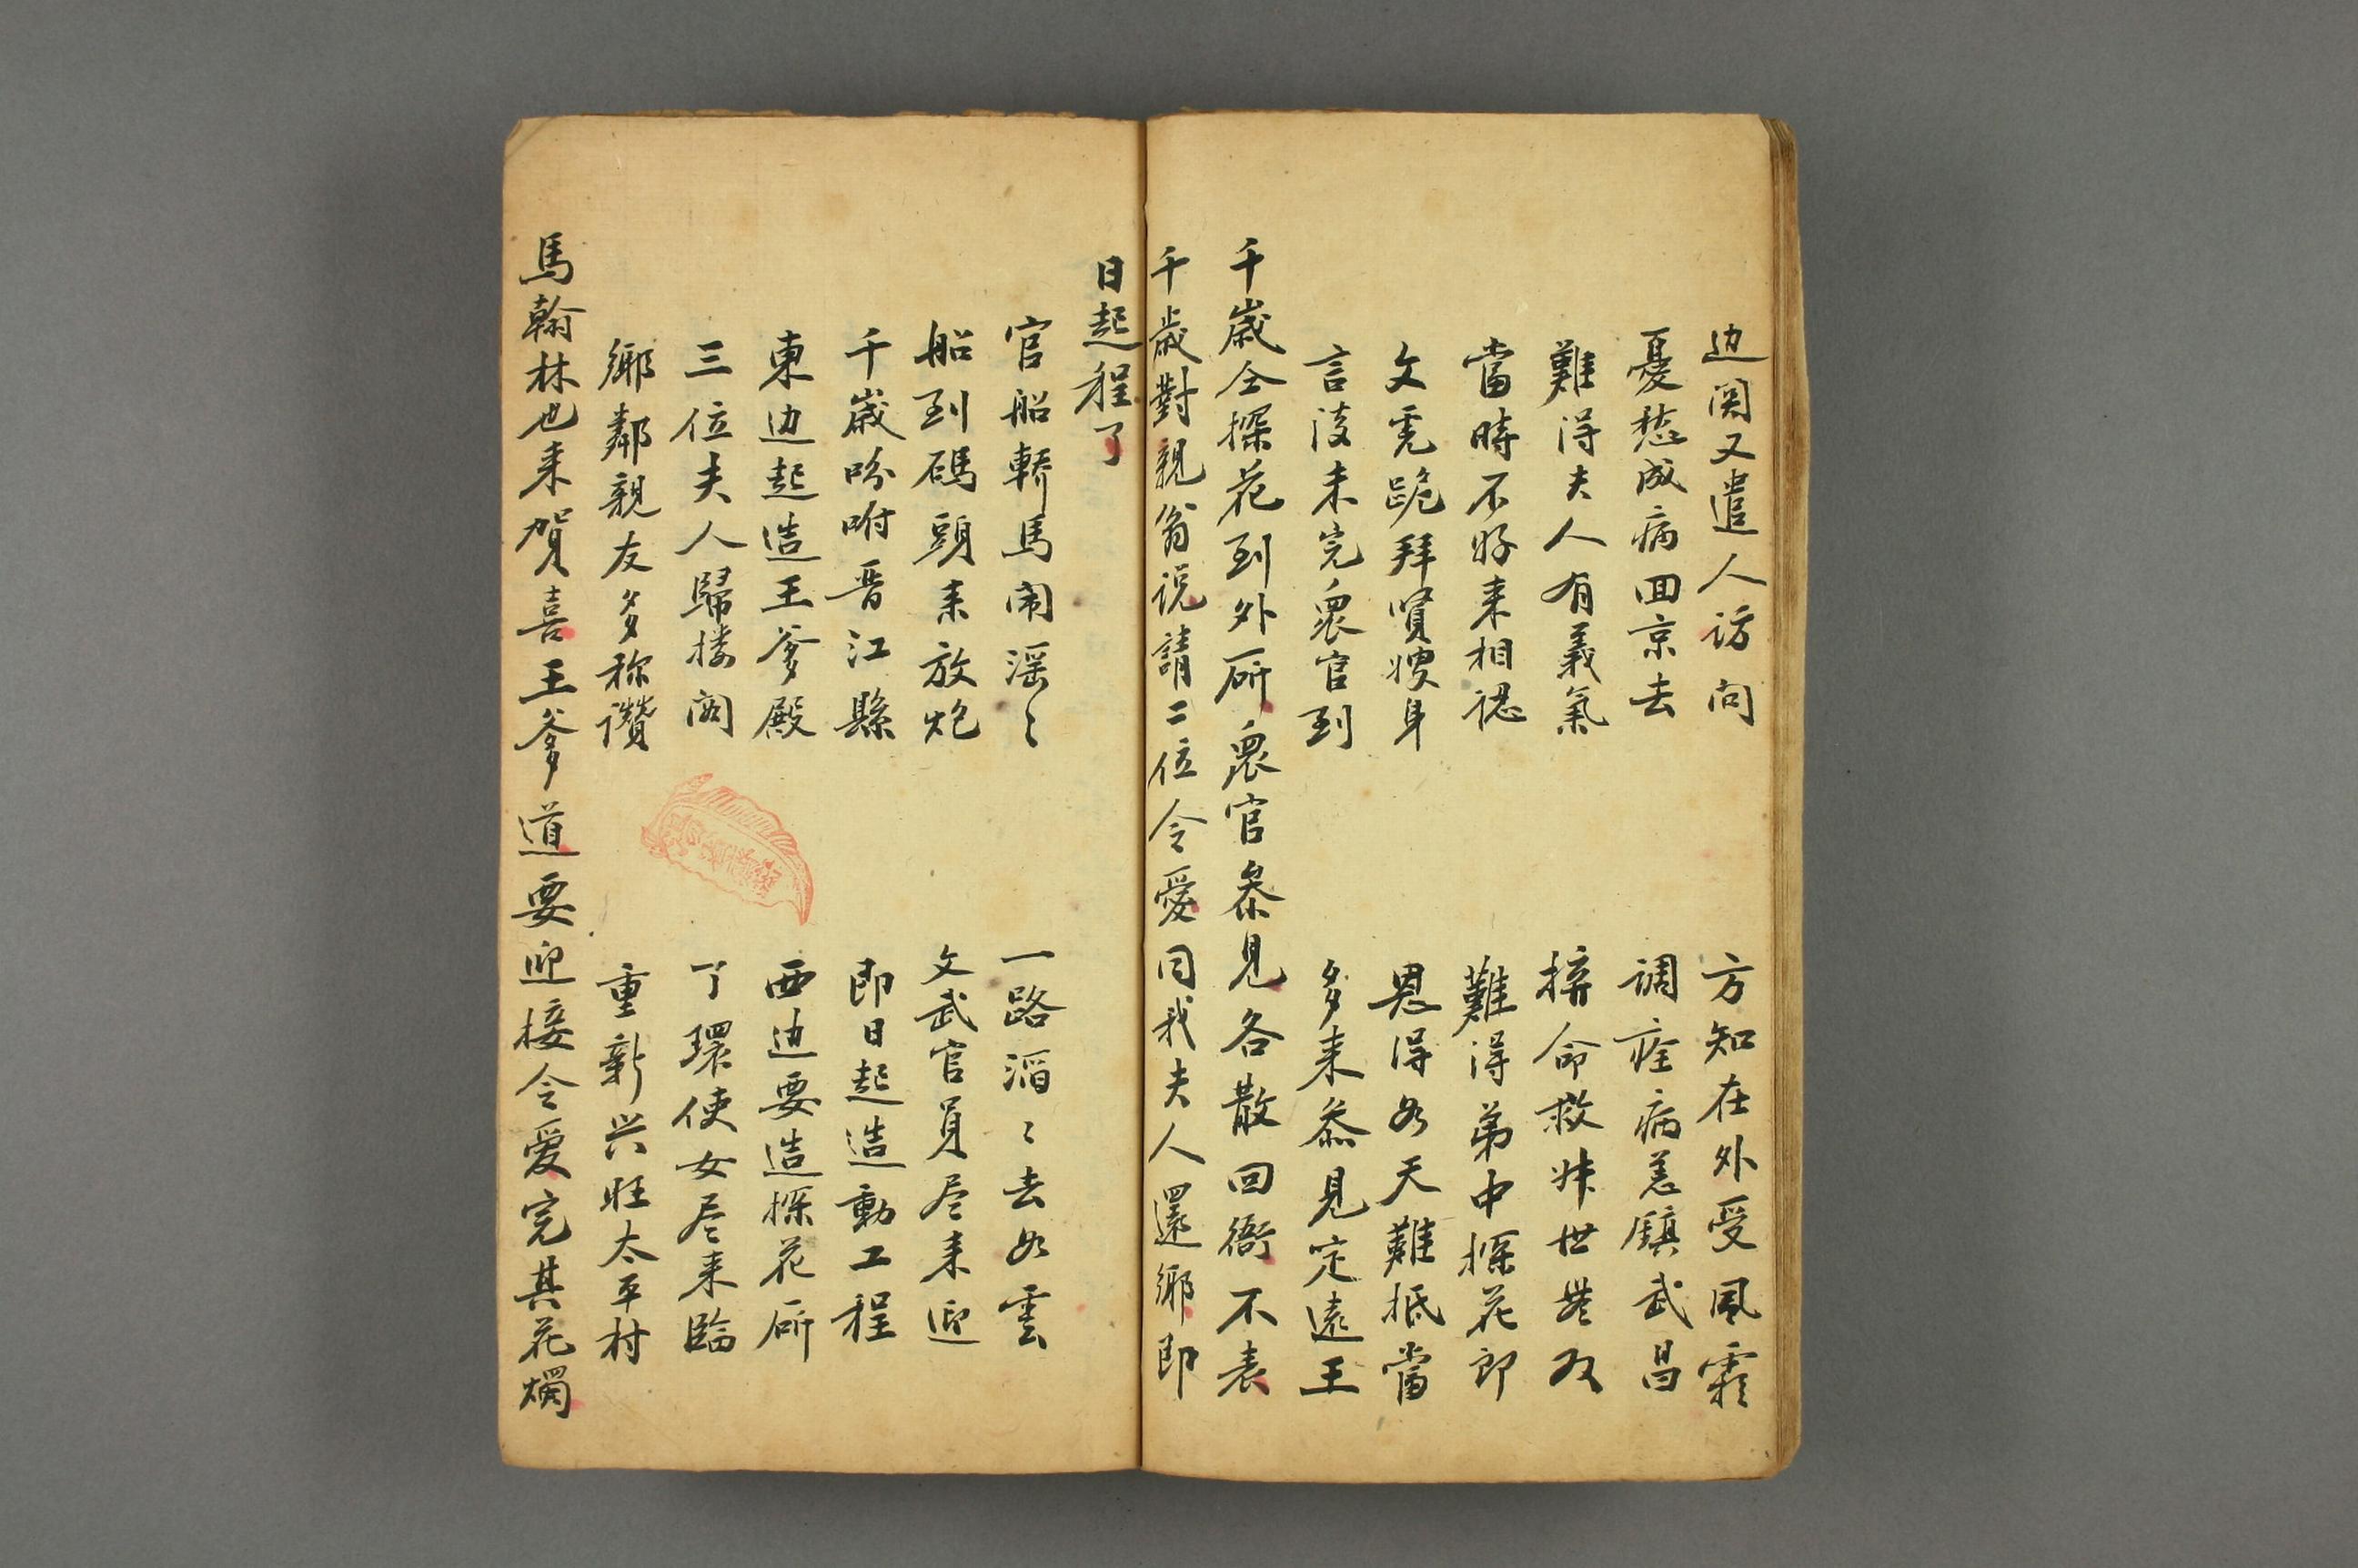 边関又遣人访问　方知在外受風霜
憂愁成病回京去　调痊病恙鎮武昌
難得夫人有義氣　捹命救妹世無双
當時不好来相認　難得弟中探花郎
文宪跪拜賢嫂身　恩得如天難抵當
言談未完衆官到　多来叅見定遠王
千歳仝探花到外所衆官叅見各散回衙不表
千歳對親翁说請二位令愛同我夫人還鄉即
日起程了
官船轎馬闹滛〻　一路滔〻去如雲
船到碼頭来放炮　文武官員尽来迎
千歳吩咐晋江縣　即日起造動工程
東边起造王爹殿　西边要造探花所
三位夫人歸楼阁　丫環使女尽来臨
鄉鄰親友多称讚　重新兴旺太平村
馬翰林也来賀喜王爹道要迎接令愛完其花燭